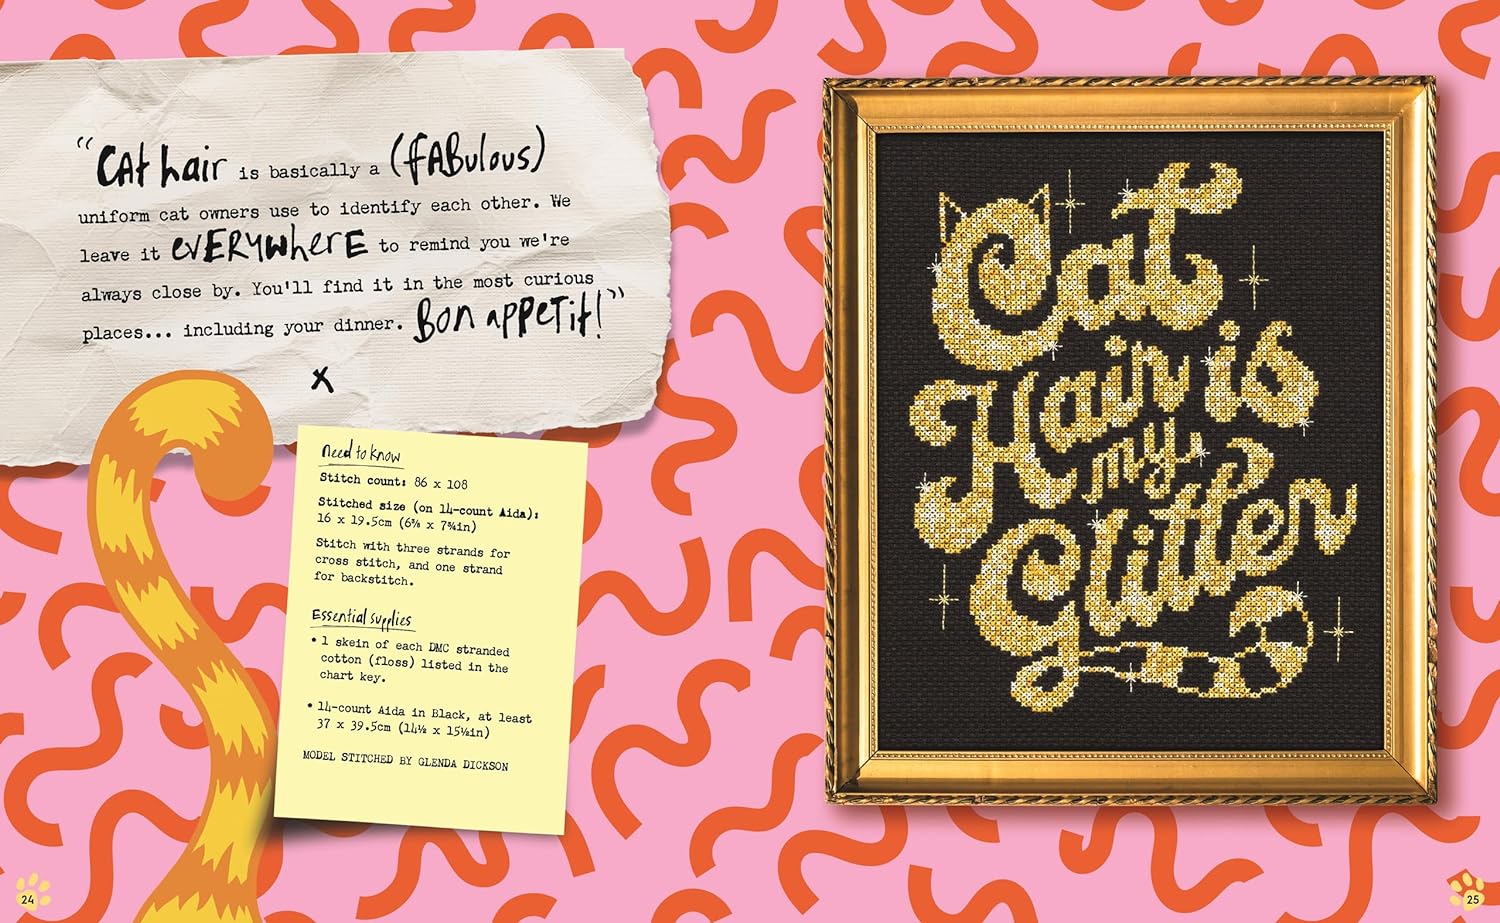 “CAt hair is basically a (fABulous)
uniform cat owners use to identify each other. We
leave it evERYwhErE to remind you we're
always close by. You'll find it in the most curious
places... including your dinner. Bon appetit!”
x
Need to know
Stitch count: 86 x 108
Stitched size (on 14-count Aida):
16 x 19.5cm (6⅜ x 7¾in)
Stitch with three strands for
cross stitch, and one strand
for backstitch.
Essential supplies
• 1 skein of each DMC stranded
cotton (floss) listed in the
chart key.
• 14-count Aida in Black, at least
37 x 39.5cm (14½ x 15½in)
MODEL STITCHED BY GLENDA DICKSON
24
Cat
Hair is
my
Glitter
25